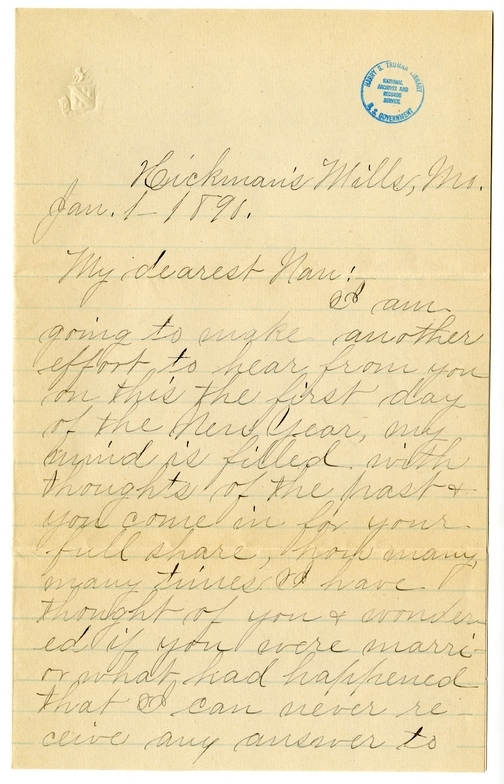 HARRY S. TRUMAN LIBRARY
NATIONAL
ARCHIVES AND
RECORDS
SERVICE
U. S. GOVERNMENT
Hickman's Mills, Mo.
Jan. 1 - 1890.
My dearest Nan:
I am
going to make another
effort to hear from you
on this the first day
of the New Year, my
mind is filled with
thoughts of the past &
you come in for your
full share, how many,
many times I have
thought of you & wonder
ed if you were marri-
or what had happened
that I can never re-
ceive any answer to